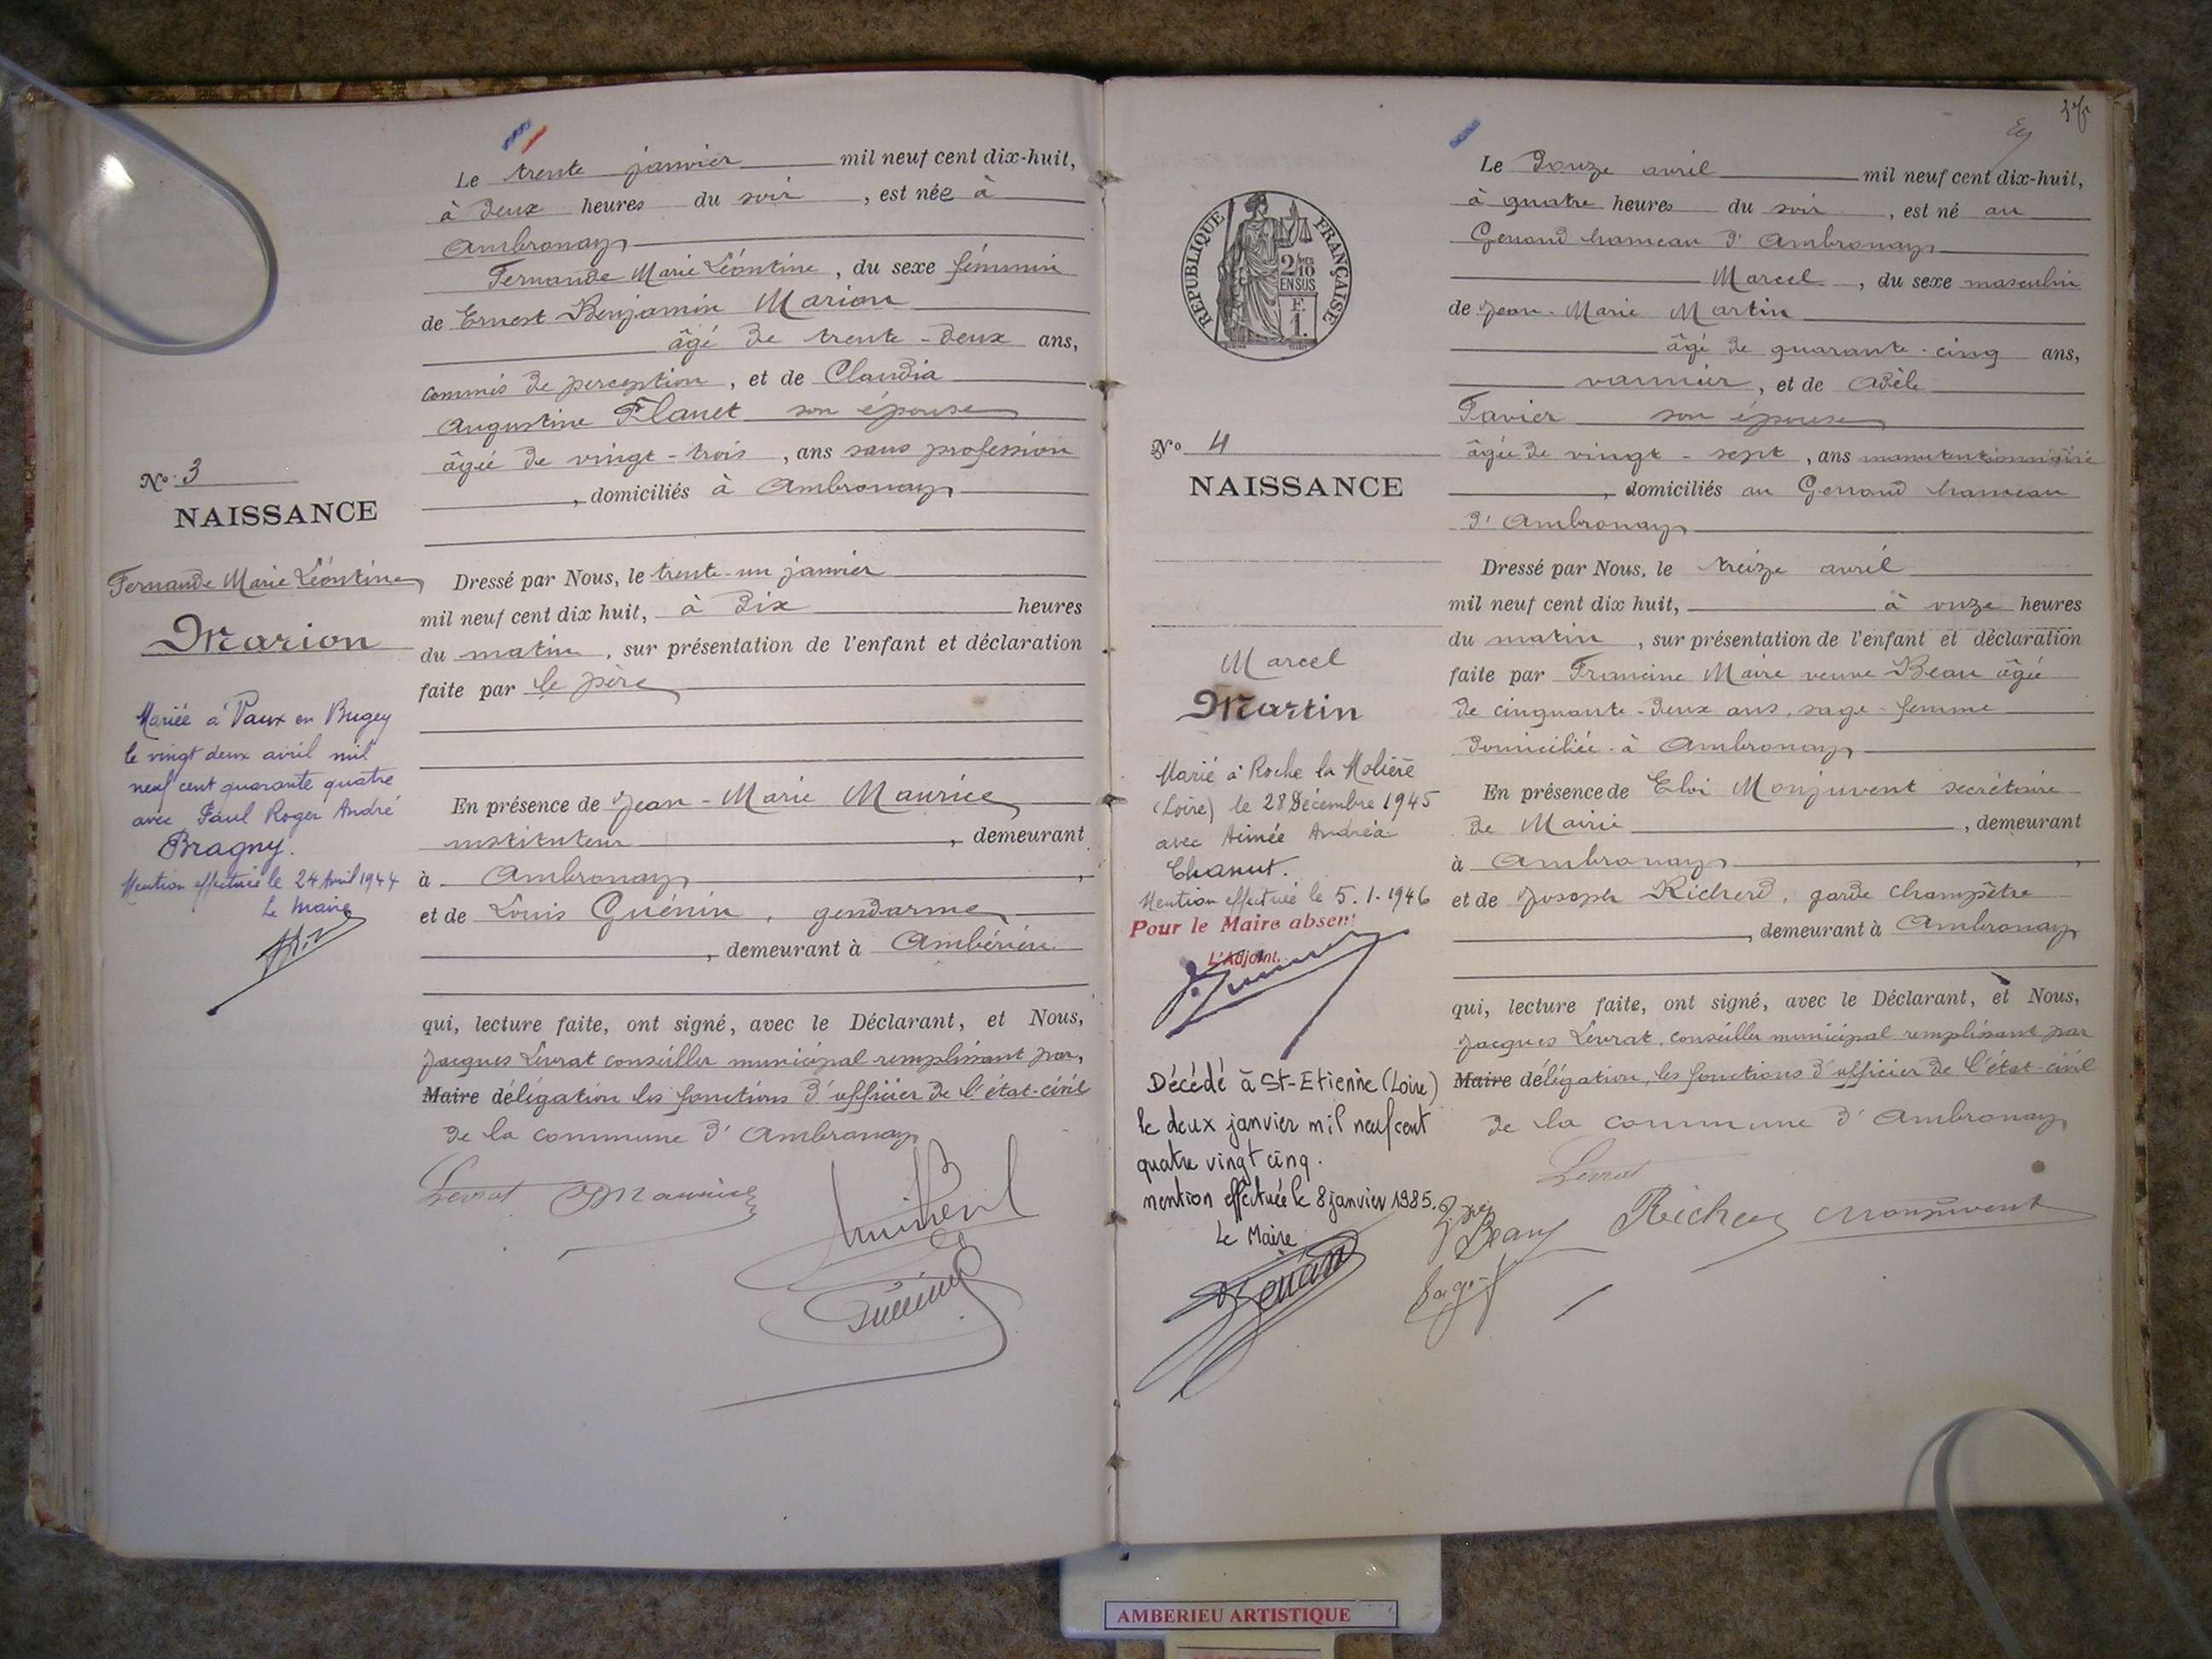 N° 3
NAISSANCE
Fernande Marie Léontine
Marion
Mariée à Vaux en Bugey
le vingt deux avril mil
neuf cent quarante quatre
avec Paul Roger André
Bragny.
Mention effectuée le 24 Avril 1944
Le Maire
Le trente janvier mil neuf cent dix-huit,
à deux heures du soir, est née à
Ambronay
Fernande Marie Léontine, du sexe féminin
de Ernest Benjamin Marion
âgé de trente-deux ans,
commis de perception, et de Claudia
Augustine Flanet son épouse
âgée de vingt-trois, ans sans profession
, domiciliés à Ambronay
Dressé par Nous, le trente-un janvier
mil neuf cent dix huit, à dix heures
du matin, sur présentation de l'enfant et déclaration
faite par le père
En présence de Jean-Marie Maurice
instituteur, demeurant
à Ambronay,
et de Louis Guénin, gendarme
, demeurant à Ambérieu
qui, lecture faite, ont signé, avec le Déclarant, et Nous,
Jacques Levrat conseiller municipal remplissant par,
Maire délégation les fonctions d'officier de l'état-civil
de la commune d'Ambronay
Levrat Maurice
Guénin
REPUBLIQUE FRANÇAISE
2/10
EN SUS
F.
1.
N° 4
NAISSANCE
Marcel
Martin
Marié à Roche la Molière
(Loire) le 28 Décembre 1945
avec Aimée Andréa
Chanut.
Mention effectuée le 5.1.1946
Pour le Maire absent
L'Adjoint,
Décédé à St-Etienne (Loire)
le deux janvier mil neuf cent
quatre vingt cinq.
mention effectuée le 8 janvier 1985.
Le Maire
Le douze avril mil neuf cent dix-huit,
à quatre heures du soir, est né au
Genoud hameau d'Ambronay
Marcel, du sexe masculin
de Jean-Marie Martin
âgé de quarante-cinq ans,
vannier, et de Adèle
Favier son épouse
âgée de vingt-sept, ans manutentionnaire
, domiciliés au Genoud hameau
d'Ambronay
Dressé par Nous, le treize avril
mil neuf cent dix huit, à onze heures
du matin, sur présentation de l'enfant et déclaration
faite par Francine Maire veuve Beau âgée
de cinquante-deux ans, sage-femme
domiciliée à Ambronay
En présence de Eloi Monjuvent secrétaire
de Mairie, demeurant
à Ambronay,
et de Joseph Richerd, garde champêtre
, demeurant à Ambronay
qui, lecture faite, ont signé, avec le Déclarant, et Nous,
Jacques Levrat, conseiller municipal remplissant par
Maire délégation, les fonctions d'officier de l'état-civil
de la commune d'Ambronay
Levrat
Beau Richerd Monjuvent
Sage f
AMBERIEU ARTISTIQUE